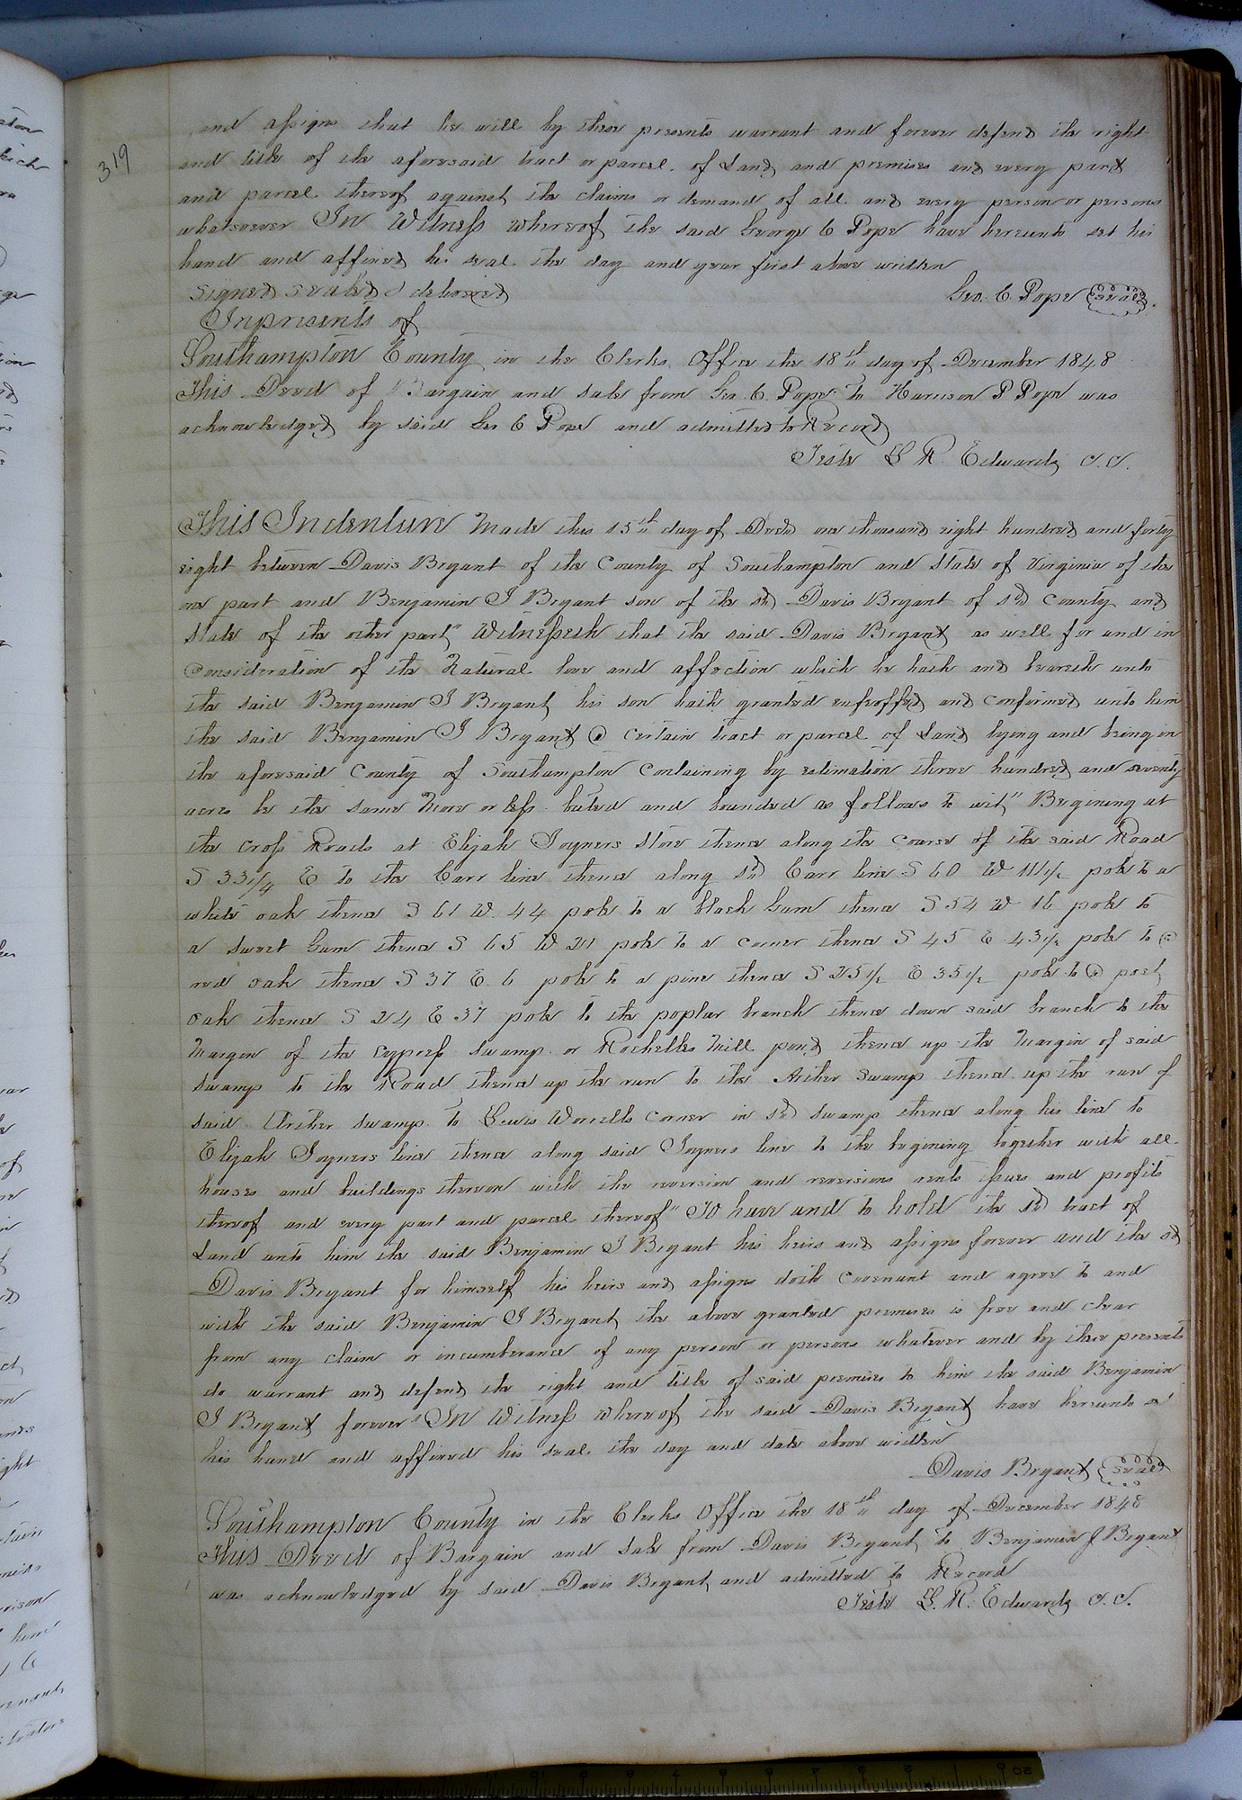 319
and assigns that he will by these presents warrant and forever defend the right
and title of the aforesaid tract or parcel of Land and premises and every part
and parcel thereof against the claims or demand of all and every person or persons
whatsoever In Witness whereof the said George C Pope have hereunto set his
hand and affixed his seal the day and year first above written
Signed sealed & delivered Geo. C. Pope Seal
In presents of
Southampton County in the Clerks Office the 18th day of December 1848
This Deed of Bargain and sale from Geo. C. Pope to Harrison P Pope was
acknowledged by said Geo C Pope and admitted to Record
Teste L R Edwards C.C.
This Indenture Made this 15th day of Decr one thousand eight hundred and forty
eight between Davis Bryant of the County of Southampton and State of Virginia of the
one part and Benjamin J Bryant son of the sd Davis Bryant of sd County and
State of the other part" Witnesseth that the said Davis Bryant as well for and in
Consideration of the Natural love and affection which he hath and beareth unto
the said Benjamin J Bryant his son hath granted enfeoffed and confirmed unto him
the said Benjamin J Bryant a certain tract or parcel of Land lying and being in
the aforesaid County of Southampton Containing by estimation three hundred and seventy
acres be the same More or less buted and bounded as follows to wit" Begining at
the cross Roads at Elijah Joyners Store thence along the course of the said Road
S 33 1/4 E to the Carr line thence along sd Carr line S 60 W 111 1/2 pole to a
white oak thence S 61 W. 44 pole to a black Gum thence S 54 W 16 pole to
a sweet Gum thence S 65 W 21 pole to a corner thence S 45 E 43 1/2 pole to a
red oak thence S 37 E. 6 pole to a pine thence S 25 1/2 E 35 1/2 pole to a post
oak thence S 24 E 37 pole to the poplar branch thence down said branch to the
Margin of the cypress swamp or Rochelles Mill pond thence up the Margin of said
swamp to the Road thence up the run to the Arther swamp thence up the run of
said Arther swamp to Lewis Worrells corner in sd swamp thence along his line to
Elijah Joyners line thence along said Joyners line to the begining together with all
houses and buildings thereon with the reversion and reversions rents issues and profits
thereof and every part and parcel thereof" To have and to hold the sd tract of
Land unto him the said Benjamin J Bryant his heirs and assigns forever and the sd
Davis Bryant for himself his heirs and assigns doth Covenant and agree to and
with the said Benjamin J Bryant the above granted premises is free and clear
from any claim or incumberance of any person or persons whatever and by these presents
do warrant and defend the right and title of said premises to him the said Benjamin
J Bryant forever" In Witness whereof the said Davis Bryant have hereunto
his hand and affixed his seal the day and date above written
Davis Bryant Seal
Southampton County in the Clerks Office the 18th day of December 1848
This Deed of Bargain and sale from Davis Bryant to Benjamin J Bryant
was acknowledged by said Davis Bryant and admitted to Record
Teste L. R. Edwards C.C.